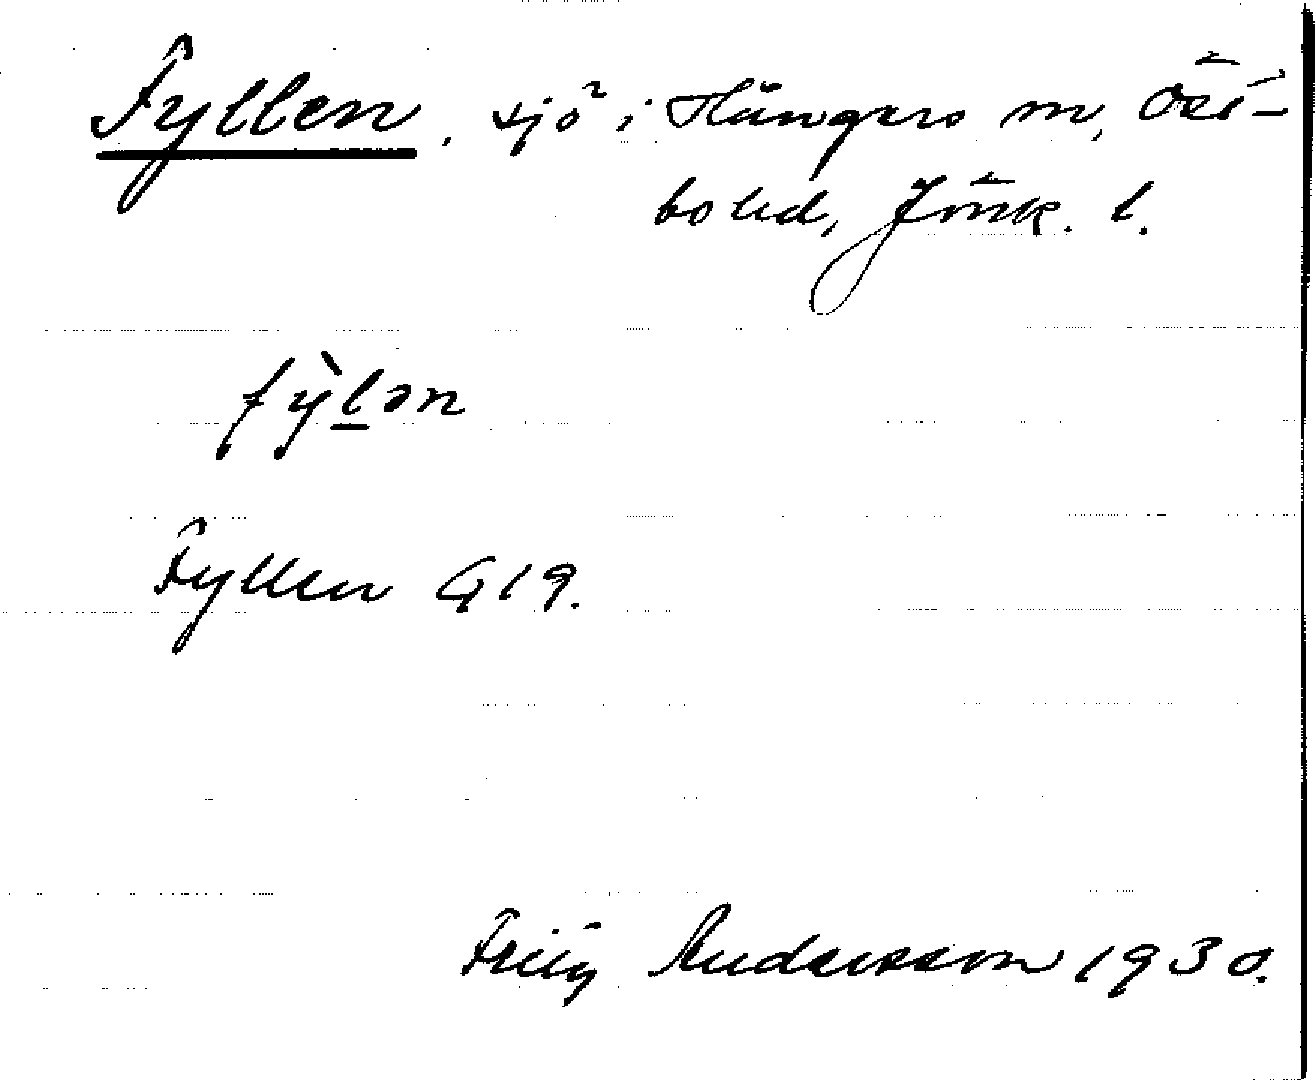 Fyllen, sjö i Hångers sn, Öst-
bo hd, Jönk. l.
fỳl̲ən
Fyllen G 19.
Fritz Andersson 1930.